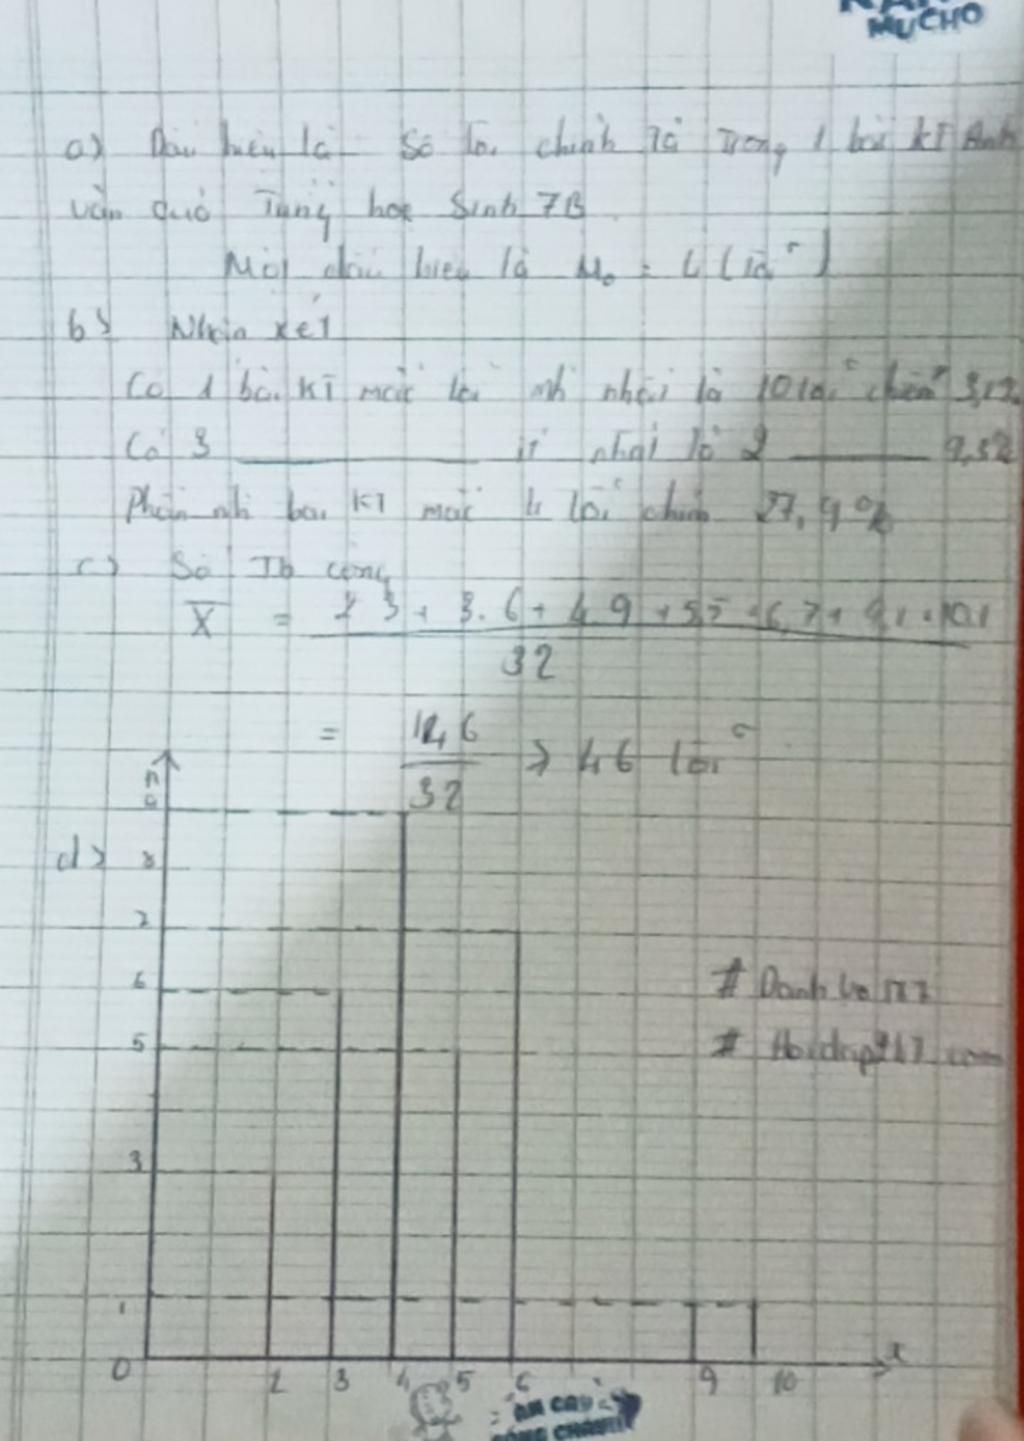 MUCHO
a) Dấu hiệu là Số lỗi chính tả trong 1 bài KT Anh
văn của từng học Sinh 7B
Mốt dấu hiệu là M₀ = 4 (lỗi)
b) Nhận xét
Có 1 bài KT mắc lỗi nh nhất là 10 lỗi chiếm 3,12
Có 3 ——— ít nhất là 2 ——— 9,32
Phần nh bài KT mắc 4 lỗi chiếm 27,9%
c) Số Tb cộng
X = 2 3 + 3.6 + 4 9 + 5 5 + 6 7 + 9 1 + 10 1
32
= 146
32
4 6 lỗi
n
9
d) 8
7
6
# Danh
5
# Hoidap247.com
3
1
0 2 3 4 5 6 9 10 x
ĂN CAY